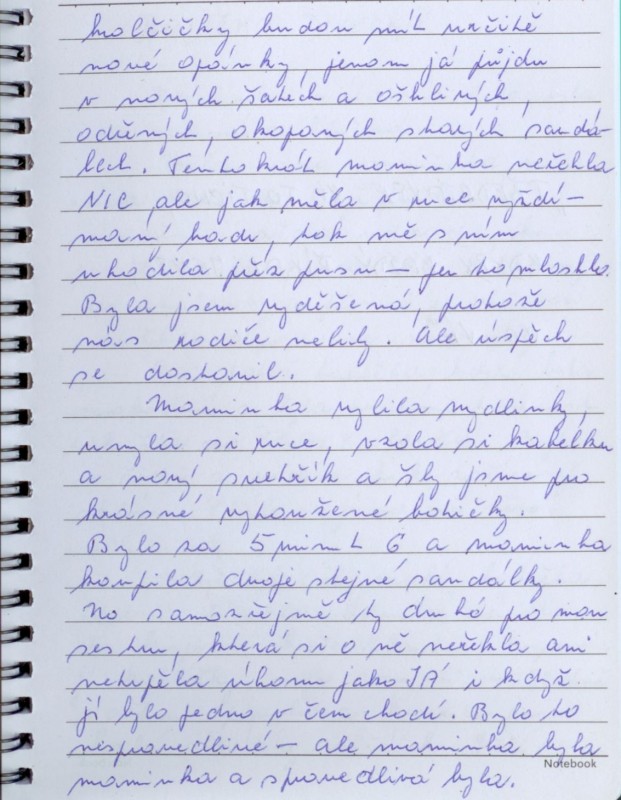 holčičky budou mít určitě
nové opánky, jenom já půjdu
v nových šatech a ošklivých,
oděných, okopaných starých sandá-
lech. Tentokrát maminka neřekla
NIC ale jak měla v ruce vyždí-
maný hadr, tak mě s ním
uhodila přes pusu – jen to mlasklo.
Byla jsem vyděšená, protože
nás rodiče nebily. Ale úspěch
se dostavil.
Maminka vylila mydlinky,
umyla si ruce, vzala si kabelku
a nový svetřík a šly jsme pro
krásné vytoužené botičky.
Bylo za 5 minut 6 a maminka
koupila dvoje stejné sandálky.
No samozřejmě ty druhé pro mou
sestru, která si o ně neřekla ani
netrpěla úhonu jako JÁ i když
jí bylo jedno v čem chodí. Bylo to
nespravedlivé – ale maminka byla
maminka a spravedlivá byla.
Notebook